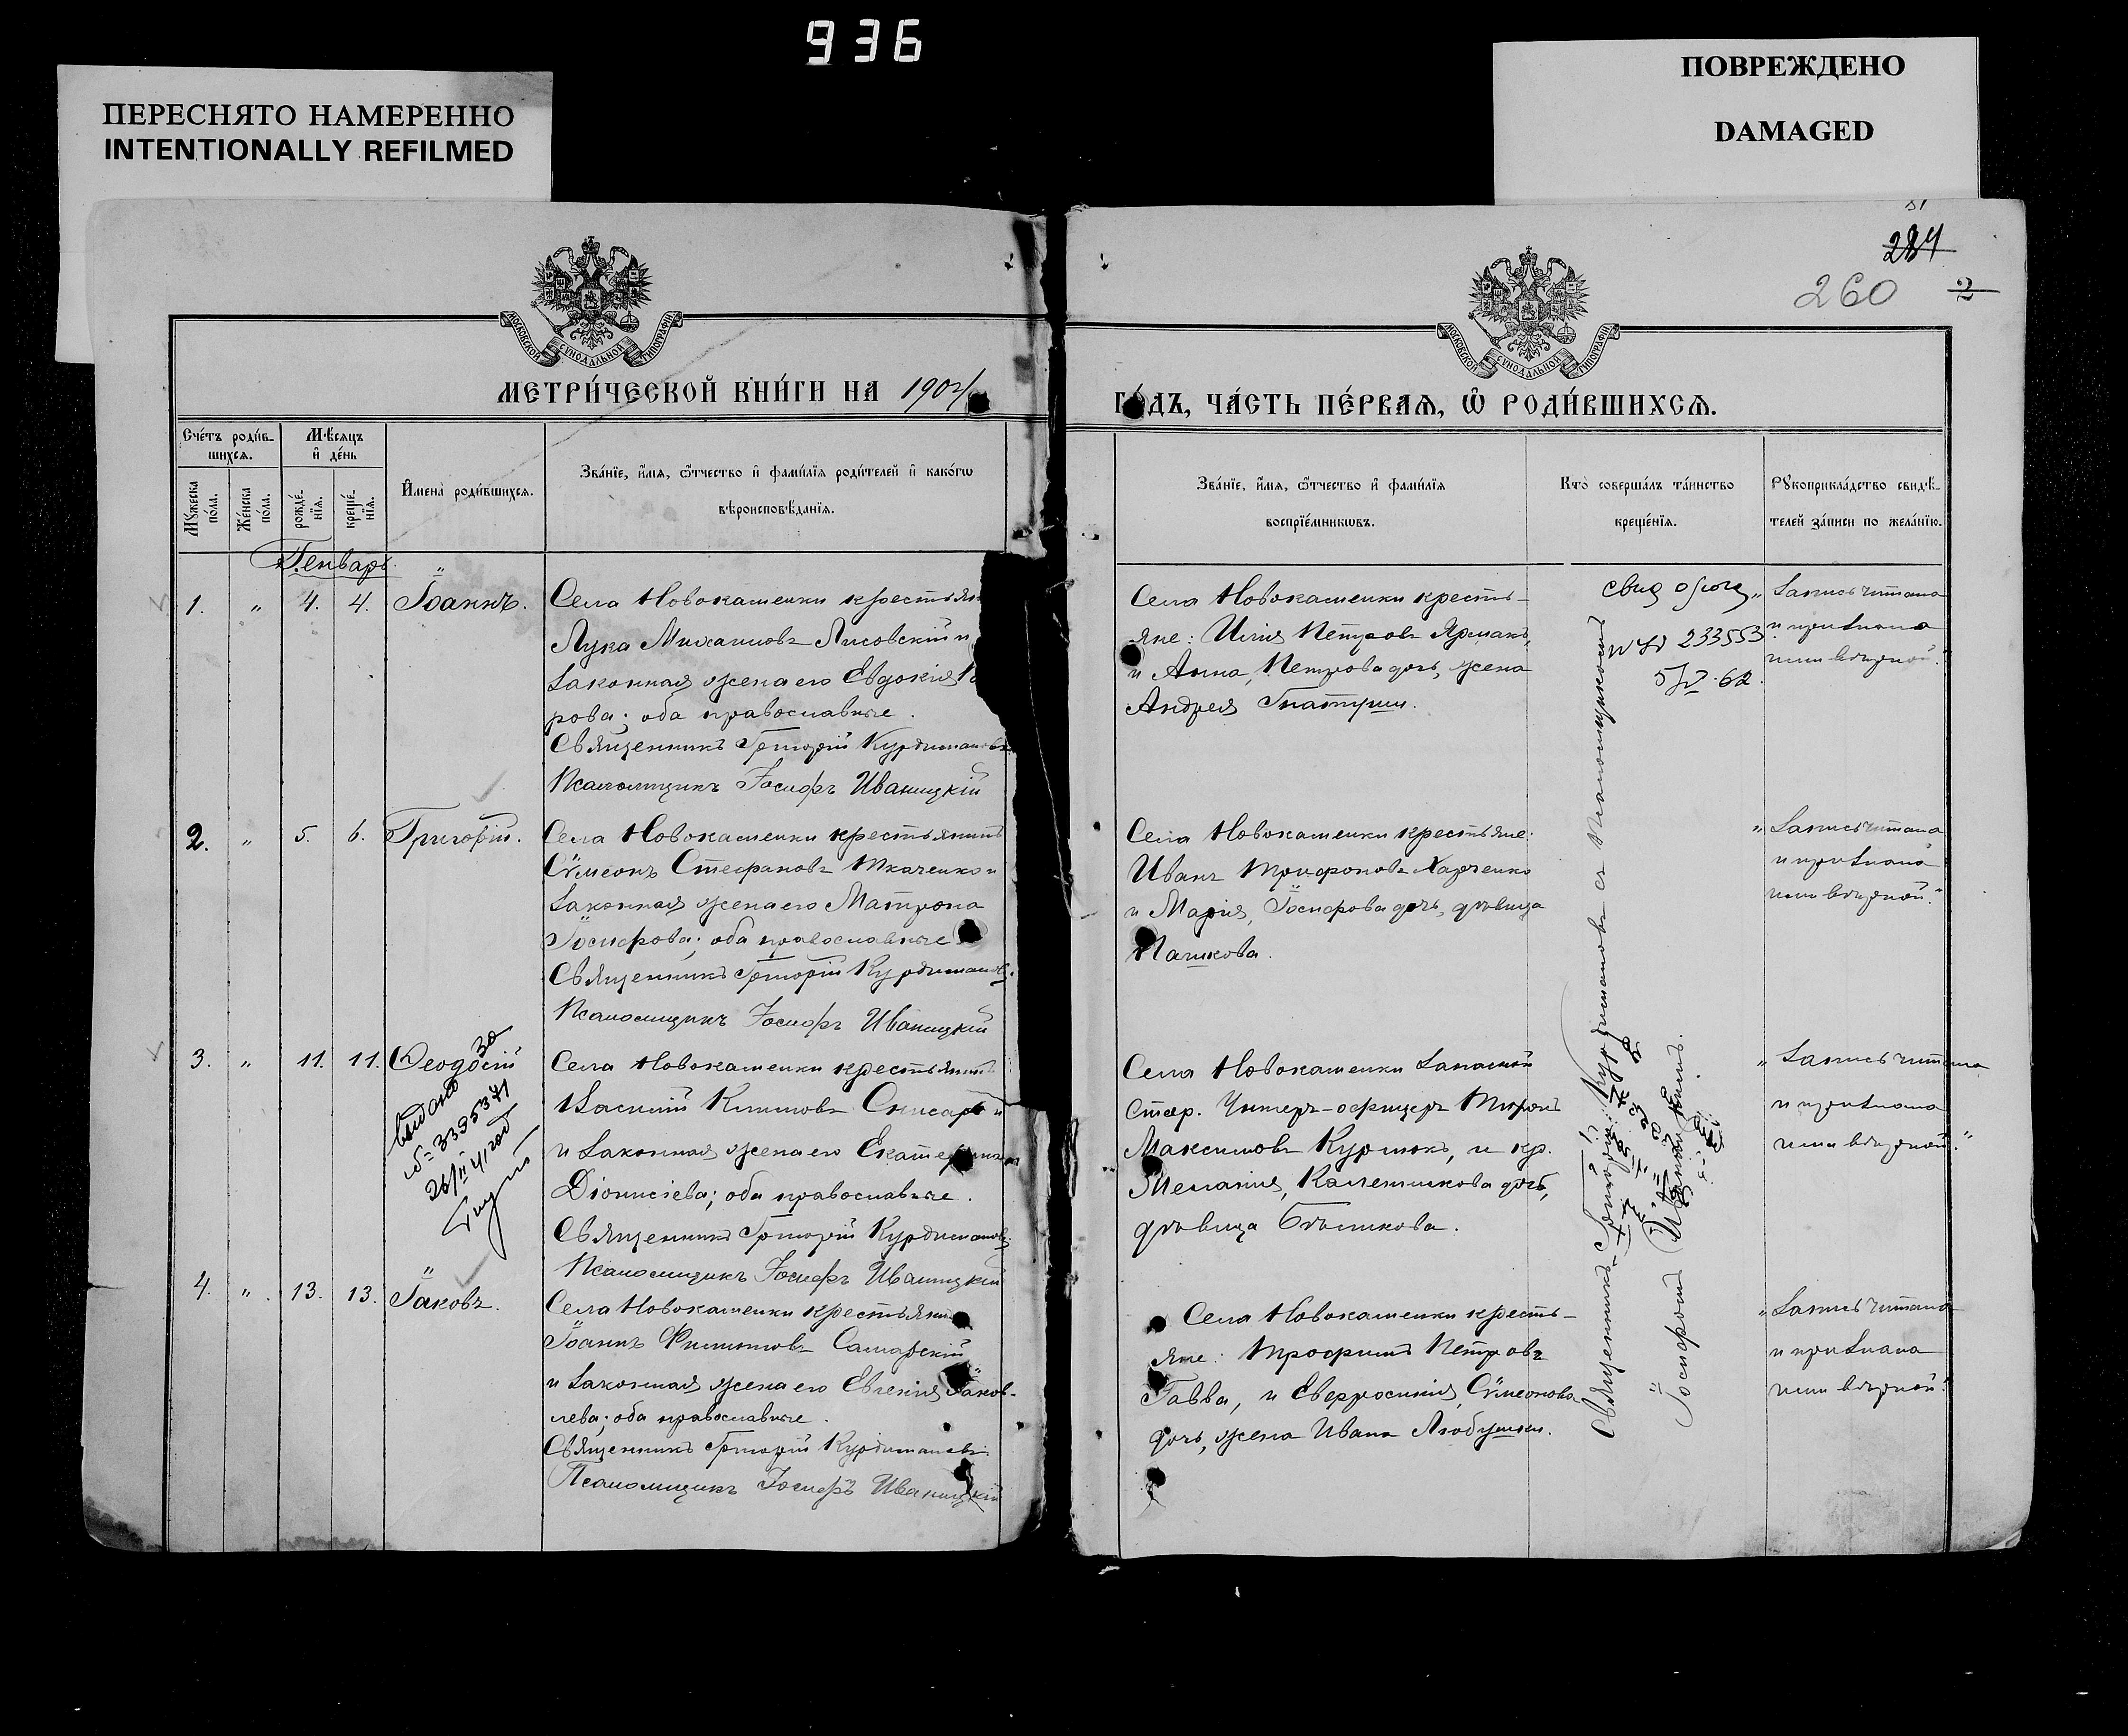 936
ПЕРЕСНЯТО НАМЕРЕННО
INTENTIONALLY REFILMED
ПОВРЕЖДЕНО
DAMAGED
260
2
МОСКОВСКОЙ СУНОДАЛЬНОЙ ТИПОГРАФІИ
МОСКОВСКОЙ СУНОДАЛЬНОЙ ТИПОГРАФІИ
МЕТРИ́ЧЕСКОЙ КНИ́ГИ НА 1904
ГО́ДЪ, ЧА́СТЬ ПЕ́РВАѦ, Ѡ РОДИ́ВШИХСѦ.
Сче́тъ роди́в-
шихсѧ.
Мꙋ́жеска по́ла.
Же́нска по́ла.
Мѣ́сѧцъ
и҆ де́нь
рожде́-
нїѧ.
креще́-
нїѧ.
И҆мена̀ роди́вшихсѧ.
Зва́нїе, и҆́мѧ, ѻ҆́тчество и҆ фами́лїѧ роди́телей и҆ како́гѡ
вѣроисповѣ́данїѧ.
Зва́нїе, и҆́мѧ, ѻ҆́тчество и҆ фами́лїѧ
воспрїе́мникѡвъ.
Кто̀ соверша́лъ та́инство
креще́нїѧ.
Рꙋкоприкла́дство свидѣ́-
телей за́писи по жела́нїю.
Генварь.
1. " 4. 4. Іоаннъ.
Села Новокаменки крестьян
Лука Михаиловъ Лисовскій и
законная жена его Евдокія
рова; оба православные.
Священникъ Григорій Курдимановъ
Псаломщикъ Іосифъ Иваницкій
Села Новокаменки кресть-
яне: Илія Петровъ Ярмакъ,
и Анна, Петрова дочь, жена
Андрея
233553
62.
"Запись читана
и признана
ими вѣрной."
2. " 5. 6. Григорій.
Села Новокаменки крестьянинъ
Сѵмеонъ Стефановъ Ткаченко и
законная жена его Матрона
Іосифова; оба православные
Священникъ Григорій Курдимановъ
Псаломщикъ Іосифъ Иваницкій
Села Новокаменки крестьяне:
Иванъ Трифоновъ Харченко
и Марія, Іосифова дочь, дѣвица
Пашкова.
"Запись читана
и признана
ими вѣрной."
3. " 11. 11. Ѳеодосій
выдано
26/II 41 год
Села Новокаменки крестьянинъ
Василій Климовъ Слисарь и
и законная жена его Екатерина
Діонисіева; оба православные.
Священникъ Григорій Курдимановъ
Псаломщикъ Іосифъ Иваницкій
Села Новокаменки запасной
стар. Унтеръ-офицеръ Миронъ
Максимовъ Курлюкъ, и кр.
Меланія, Калинникова дочь,
дѣвица
"Запись читана
и признана
ими вѣрной."
4. " 13. 13. Іаковъ.
Села Новокаменки крестьянинъ
Іоаннъ Филипповъ Самарскій
и законная жена его Евгенія Іаков-
лева; оба православные.
Священникъ Григорій Курдимановъ
Псаломщикъ Іосифъ Иваницкій
Села Новокаменки кресть-
яне: Трофимъ Петровъ
Гавва, и Евфросинія, Сѵмеонова
дочь, жена Ивана
"Запись читана
и признана
ими вѣрной."
Священникъ Григорій Курдимановъ съ Псаломщикомъ
Іосифомъ Иваницкимъ.